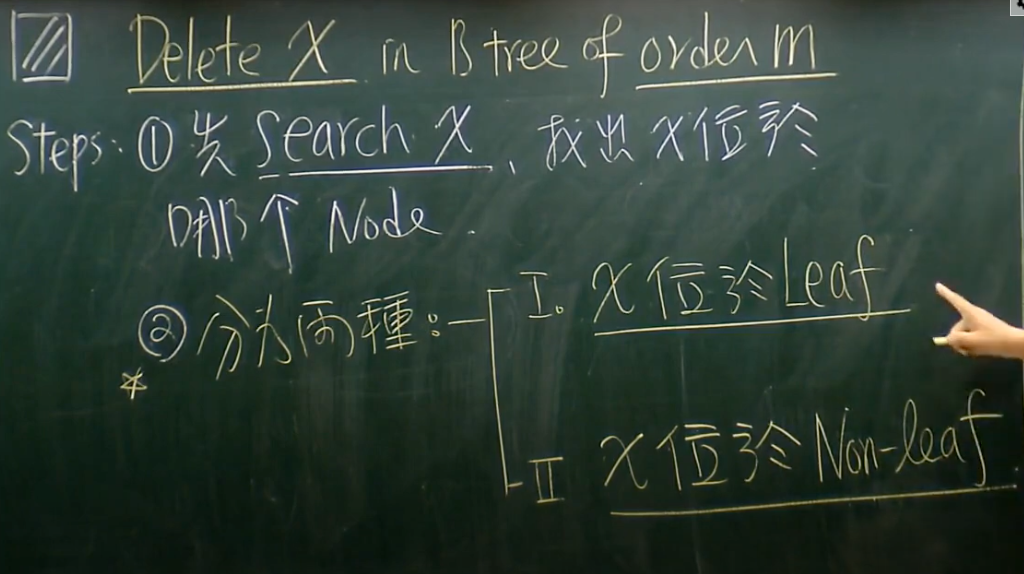 Delete X in B tree of order m
Steps: ① 先 search X, 找出 X 位於
哪个 Node.
② 分为兩種:
I. X 位於 Leaf
*
II X 位於 Non-leaf